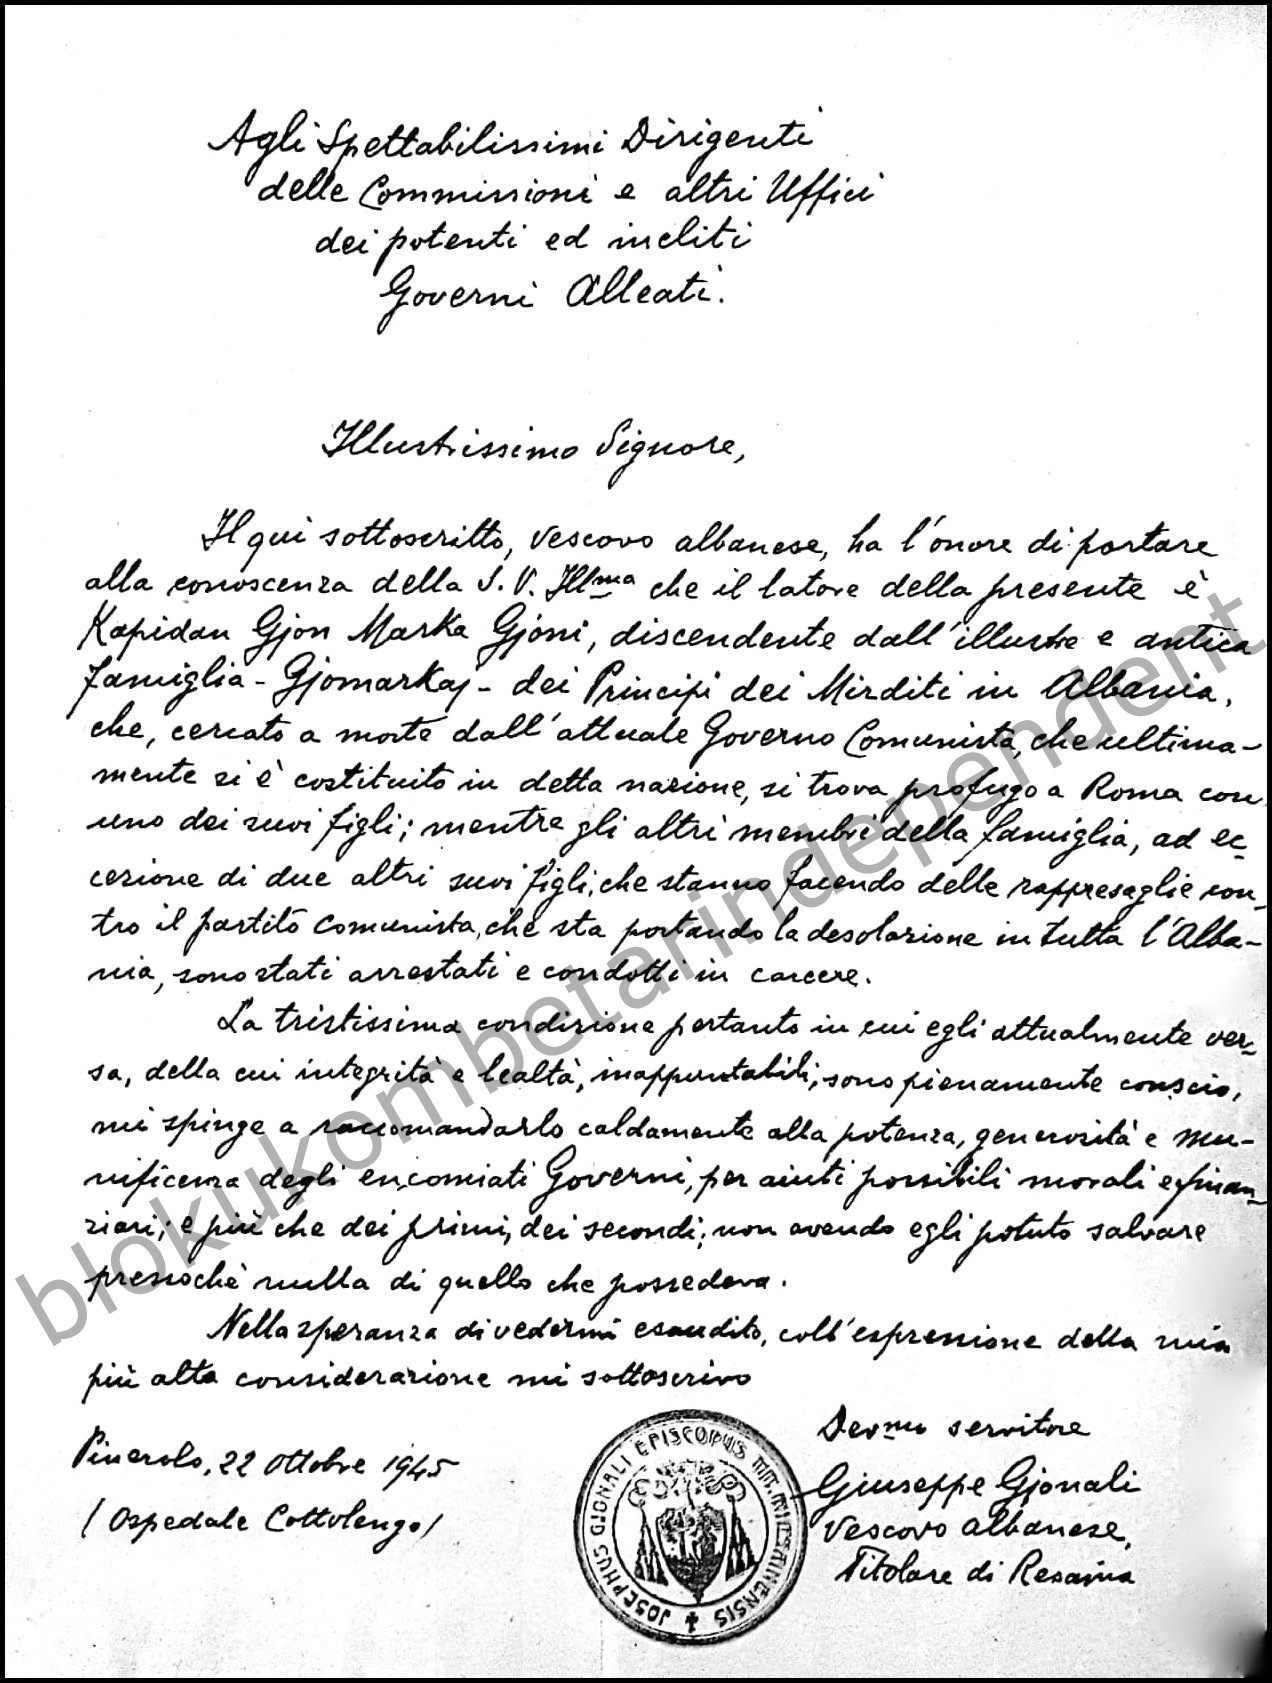 Agli Spettabilissimi Dirigenti
delle Commissioni e altri Uffici
dei potenti ed incliti
Governi Alleati.
Illustrissimo Signore,
Il qui sottoscritto, Vescovo albanese, ha l'onore di portare
alla conoscenza della S. V. Ill.ma che il latore della presente è
Kapidan Gjon Marka Gjoni, discendente dall'illustre e antica
famiglia - Gjomarkaj - dei Principi dei Mirditi in Albania,
che, cercato a morte dall'attuale Governo Comunista, che ultima-
mente si è costituito in detta nazione, si trova profugo a Roma con
uno dei suoi figli; mentre gli altri membri della famiglia, ad ec-
cezione di due altri suoi figli, che stanno facendo delle rappresaglie con-
tro il partito comunista, che sta portando la desolazione in tutta l'Alba-
nia, sono stati arrestati e condotti in carcere.
La tristissima condizione pertanto in cui egli attualmente ver-
sa, della cui integrità e lealtà, inappuntabili, sono pienamente conscio,
mi spinge a raccomandarlo caldamente alla potenza, generosità e mu-
nificenza degli encomiati Governi, per aiuti possibili morali e finan-
ziari; e più che dei primi, dei secondi; non avendo egli potuto salvare
pressochè nulla di quello che possedeva.
Nella speranza di vedermi esaudito, coll'espressione della mia
più alta considerazione mi sottoscrivo
Pinerolo, 22 Ottobre 1945
(Ospedale Cottolengo)
Dev.mo servitore
Giuseppe Gjonali
Vescovo albanese,
Titolare di Resaina
JOSEPHUS GJONALI EPISCOPUS
blokukombetarindependent